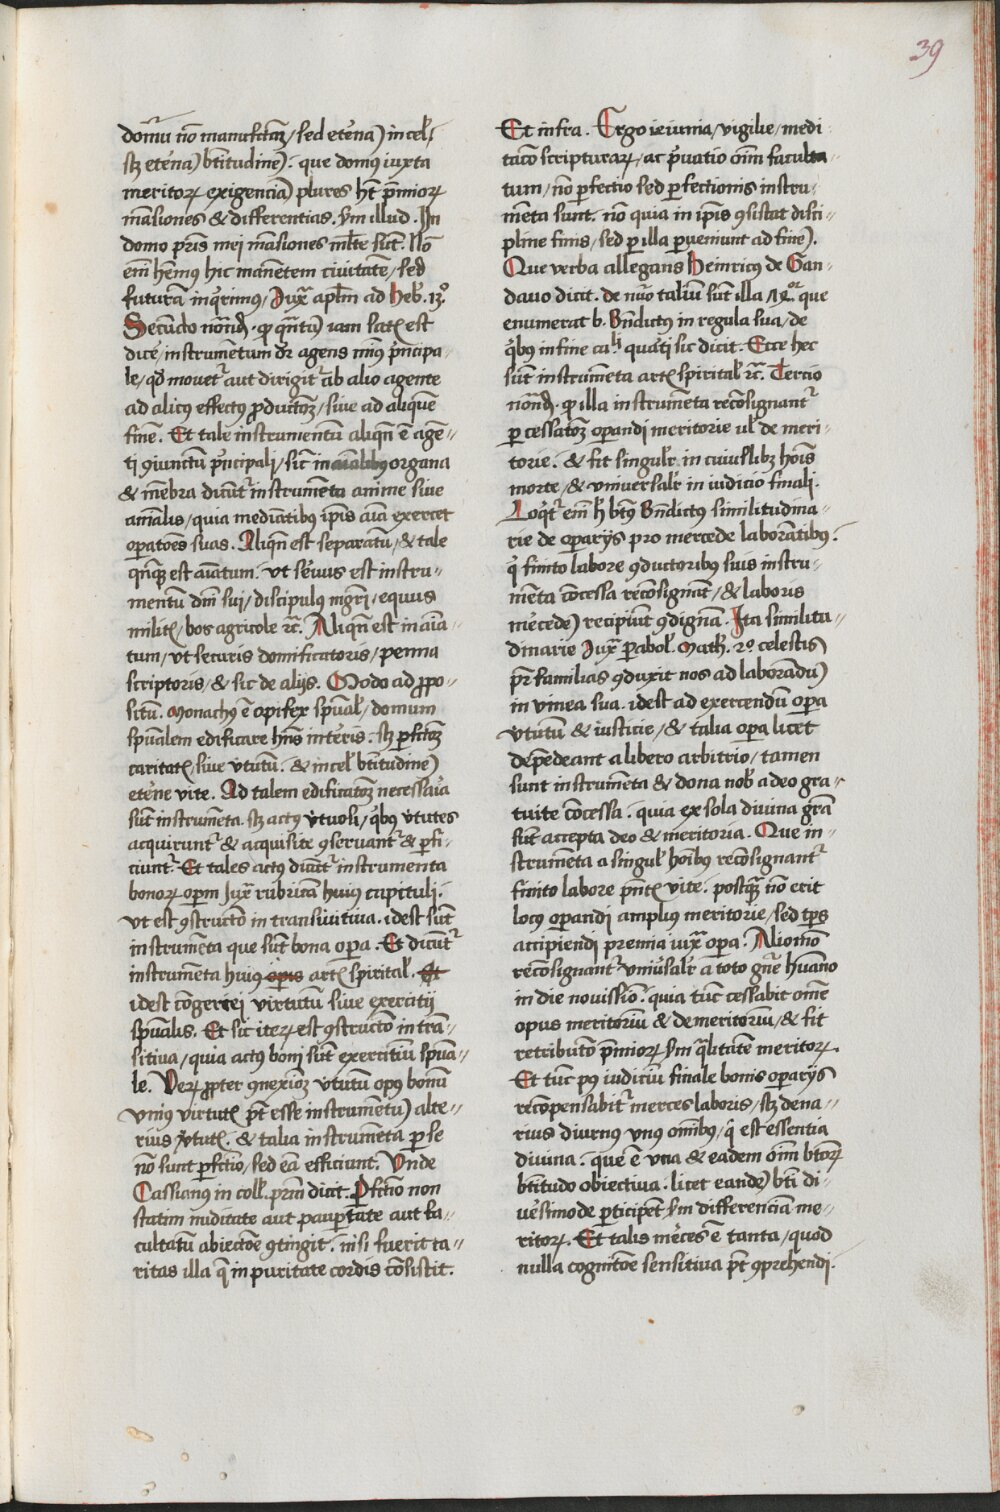 39
domū nō manufctaꝫ / sed ete̾na) in cel̛ /
sꝫ etnͣa) btitudine). que domꝰ iuxta
meritoꝝ exigencia) plures hn̄t p̄mioꝝ
māsiones & differentias. s̄m illud. In
domo pr̄is mei māsiones ml̄te sūt. Nō
em̄ hēmus hic manētem ciuitatē / sed
futurā inq̄rimus / Iux̄ apl̄m ad Heb̛. 13º.
Secūdo nōnd̛. qꝫ qn̄tū) iam satꝭ est
dicē / instrumētum dr̄ agens minꝰ p̄ncipa-
le / qd̛ mouet᷑ aut dirigit᷑ ab alio agente
ad alicꝰ effectꝰ ꝓductōꝫ / siue ad aliquē
finē. Et tale instrumentū aliqn̄ ē agē〃
ti ꝯiunctū p̄ncipali / sic̄ in aīalibꝰ organa
& mēbra dicūt᷑ instrumēta anime siue
aīalis / quia mediātibꝰ ip̄is aīa exercet
oꝑatōes suas. Aliqn̄ est separatū / & tale
qn̄qꝫ est aīatum. vt seruus est instru〃
mentū dn̄i sui / discipulꝰ mgr̄i / equus
militꝭ / bos agricole ⁊c̄. Aliqn̄ est inaīa〃
tum / vt securis domificatoris / penna
scriptoris / & sic de alijs. Modo ad ꝓpo〃
situ. Monachꝰ ē opifex spūal̛ / domum
spūalem edificare hn̄s interiꝰ. sꝫ ꝑfctōꝫ
caritatꝭ / siue v̾tutū. & in cel̛ btitudine)
etnͣe vite. Ad talem edificatōꝫ necessaria
sūt instrumēta. sꝫ actꝰ v̾tuosi / qͥbꝰ v̾tutes
acquirunt᷑ & acquisite ꝯseruant᷑ & ꝑfi〃
ciunt᷑. Et tales actꝰ dicūt᷑ instrumenta
bonoꝝ oꝑm Iux̄ rubricā huiꝰ capituli.
vt est ꝯstructō intransiuitiua. idest sūt
instrumēta que sūt bona opa. Et dicūt᷑
instrumēta huiꝰ opis artꝭ spirital̛. Et
idest cōgeriei virtutū siue exercitij
spūalis. Et sic iteꝝ est ꝯstructō intrā〃
sitiua / quia actꝰ bonj sūt exercitiū spūa〃
le. Veꝝ ꝓpter ꝯnexioꝫ v̾tutū opꝰ bonū
vniꝰ virtutꝭ pt̄ esse instrumētū) alte〃
rius v̾tutꝭ. & talia instrumēta per se
nō sunt ꝑfctio / sed eā efficiunt. Vnde
Cassianꝰ in coll̛. prīa dicit. Pfctio non
statim nuditate aut paupertate aut fa〃
cultatū abiectōe ꝯtingit. nisi fuerit ca〃
ritas illa q̄ in puritate cordis cōsistit.
Et infra. Ergo ieiunia / vigilie / medi〃
tacō scripturaꝝ / ac p̄uatio oīm faculta〃
tum / nō ꝑfectio sed ꝑfectionis instru〃
mēta sunt. nō quia in ip̄is ꝯsistat disci〃
pline finis / sed ꝑ illa ꝑueniunt ad fine).
Que verba allegans Heinricus de Gan〃
dauo dicit. de nūo taliū sūt illa que
enumerat b. Bn̄dictꝰ in regula sua / de
qͥbꝰ in fine cal̛i quarti sic dicit. Ecce hec
sūt instrumēta artꝭ spirital̛ ⁊c̄. Tercio
nōnd̛. qꝫ illa instrumēta recōsignant᷑
ꝑ cessatōꝫ oꝑandi meritorie ul̛ de meri〃
torie. & fit singulr̄ in cuiuslibꝫ hoīs
morte / & vniuersalr̄ in iudicio finali.
Loqt᷑ em̄ h̄ btūs Bn̄dictus similitudina〃
rie de oꝑarijs pro mercede laborātibꝰ.
qͥ finito labore ꝯductoribus suis instru〃
mēta cōcessa recōsignāt / & laboris
mercede) recipiūt ꝯdignā. Ita similitu〃
dinarie Iux̄ ꝑabol̛. Math̛. 20 celestis
pr̄familias ꝯduxit nos ad laborādū)
in vinea sua. idest ad exercendū opa
v̾tutū & iusticie / & talia opa licet
depēdeant a libero arbitrio / tamen
sunt instrumēta & dona nob̛ a deo gra〃
tuite cōcessa. quia ex sola diuina grā
sūt accepta deo & meritoria. Que in〃
strumēta a singul̛ hoībꝰ recōsignant᷑
finito labore pn̄tꝭ vite. postqͣꝫ nō erit
locꝰ oꝑandi ampliꝰ meritorie / sed tp̄s
accipiendi premia iuxͣ opa. Aliomō
recōsignant᷑ vniu̾salr̄ a toto gn̄e hu̾ano
in die nouissīo. quia tūc cessabit omē
opus meritoriū & demeritoriū / & fit
retributō p̄mioꝝ s̄m qͣlitatē meritoꝝ.
Et tūc pꝰ iudiciū finale bonis oꝑarijs
recōpensabit᷑ merces laboris / sꝫ dena〃
rius diurnꝰ vnꝰ omībꝰ / q̄ est essentia
diuina. que ē vna & eadem oīm btōꝝ
btitudo obiectiua. licet eande) bt̄i di〃
uersimode ꝑticipēt s̄m differenciā me〃
ritoꝝ. Et talis merces ē tanta / quod
nulla cognitōe sensitiua pt̄ ꝯprehendi.